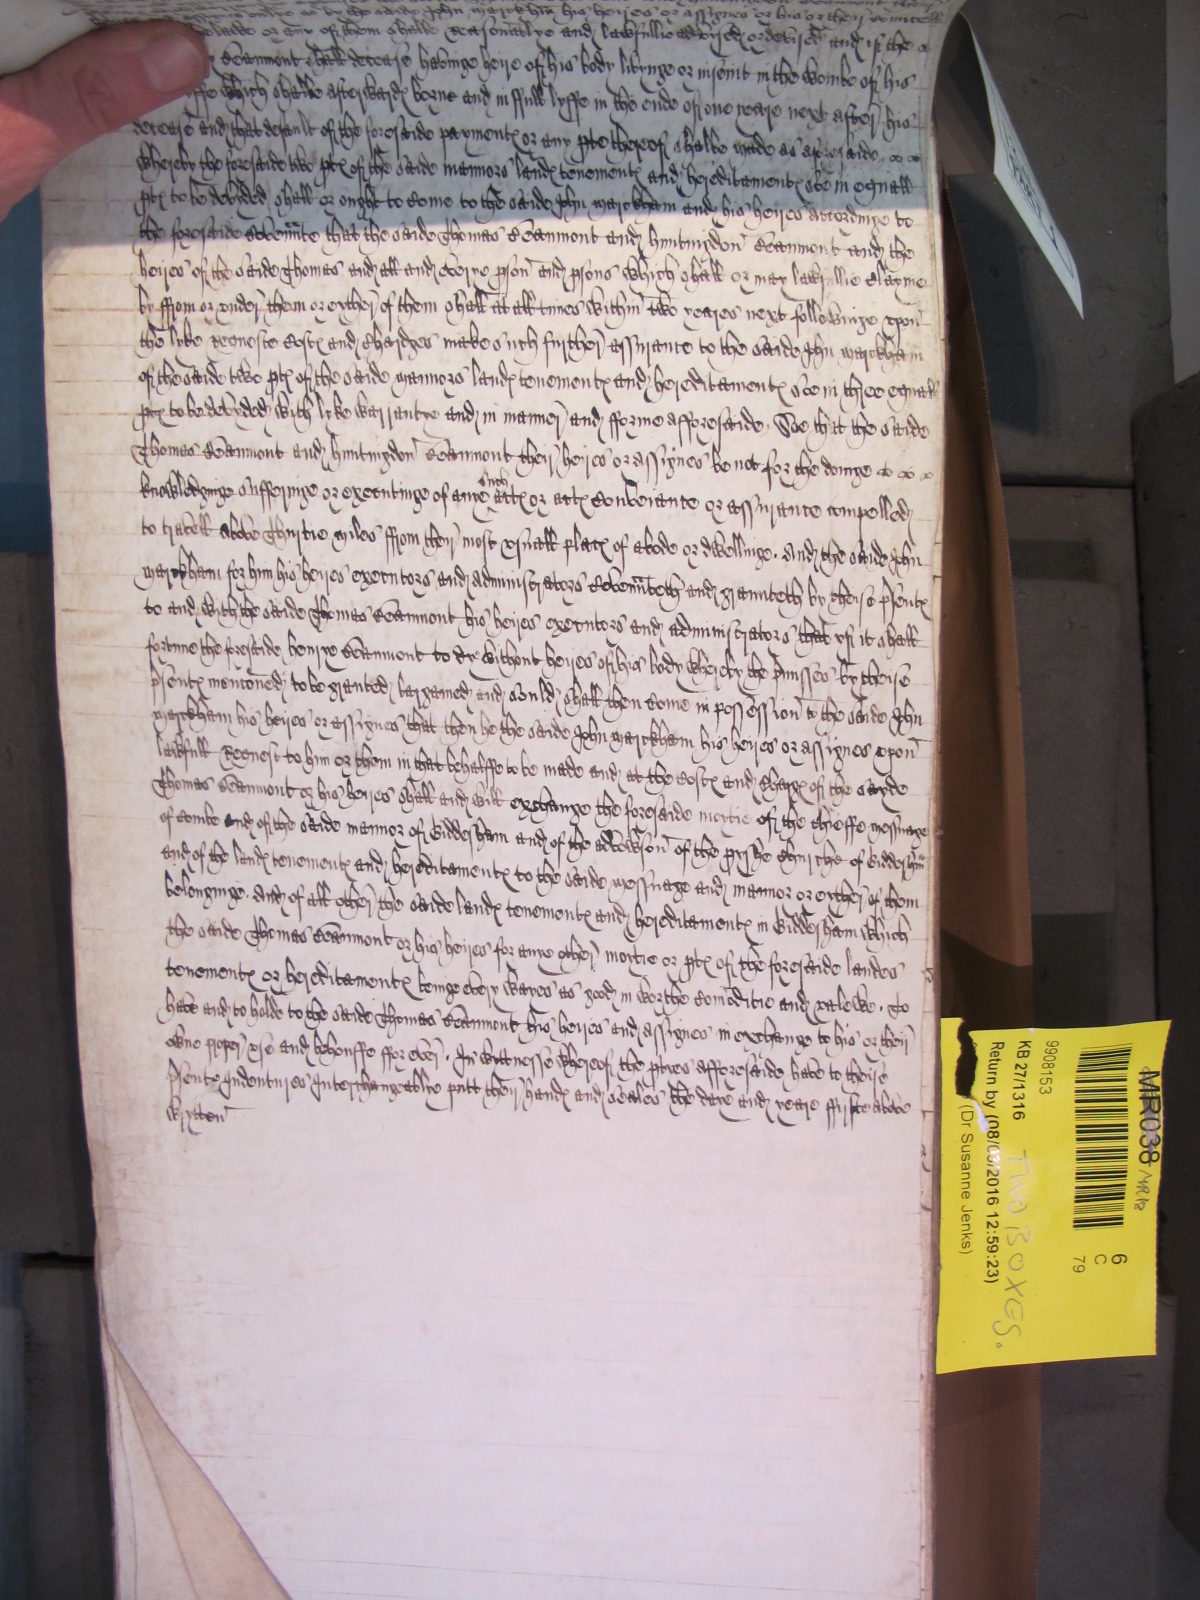 by the saide John Markham his heires or assignes or his or their councell
or any of them shalbe reasonablye and lawfullie advysed or devised and if the
Beaumont shall decease havinge heire of his body lyvynge or insent in the wombe of his
wyffe which shalbe afterward borne and in full lyffe in the ende of one yeare next after his
decease and that default of the foresaide payment or any pte thereof shalbe made as aforesaide
whereby the foresaide two pt of the saide mannors land tenement and hereditament in eguall
pt to be devided shall or ought to come to the saide John Marckham and his heires accordinge to
the foresaide that the saide Thomas Beaumont and Huntingdon Beaumont and the
heires of the saide Thomas and all and everye pson and psons which shall or may lawfullie clayme
by ffrom or under them or eyther of them shall at all times within two yeares next followinge upon
the lyke requeste cost and chardges make such further assurance to the saide John Marckham
of the saide two pt of the saide mannors land tenement and hereditament in three eguall
pt to be devyded with lyke warrantye and in manner and fforme afforesaide. Soe that the saide
Thomas Beaumont and Huntingdon Beaumont their heires or assignes be not for the doinge
knowledginge sufferinge or executinge of anye such acte or act conveiance or assurance compelled
to travell above thyrtie myles ffrom their most usuall place of abode or dwellinge. And the saide John
Marckham for him his heires executors and administrators covennteth and graunteth by theise psent
to and with the saide Thomas Beaumont his heires executors and administrators that yf it shall
fortune the foresaide henrye Beaumont to dye without heires of his body whereby the pmisses by theise
psent mentoned to be granted bargained and sould shall then come in possession to the saide John
Marckham his heires or assignes that then he the saide John Marckham his heires or assignes upon
lawfull request to him or them in that behalffe to be made and at the cost and charges of the sayde
Thomas Beaumont or his heires shall and will exchange the foresaide moytie of the chieffe messuage
of combe and of the saide mannor of Biddesham and of the advowson of the pryshe churche of Biddesham
and of the land tenement and hereditament to the saide messuage and mannor or eyther of them
belonginge. And of all other the saide land tenement and hereditament in Biddesham which
the saide Thomas Beaumont or his heires for anye other moytie or pt of the foresaide landes
tenement or hereditament beinge every wayes as good in worthe comoditie and valewe. To
have and to holde to the saide Thomas Beaumont his heires and assignes in exchange to his or their
owne proper use and behouffe ffor ever. In wittnesse whereof the ptyes afforesaide have to theise
psente Indentures Interchangeablye putt their hand and seales the daye and yeare ffirste above
wrytten
MR038
6
C
79
9908153
KB 27/1316
Return by (08/03/2016 12:59:23)
(Dr Susanne Jenks)
TWO BOXES.